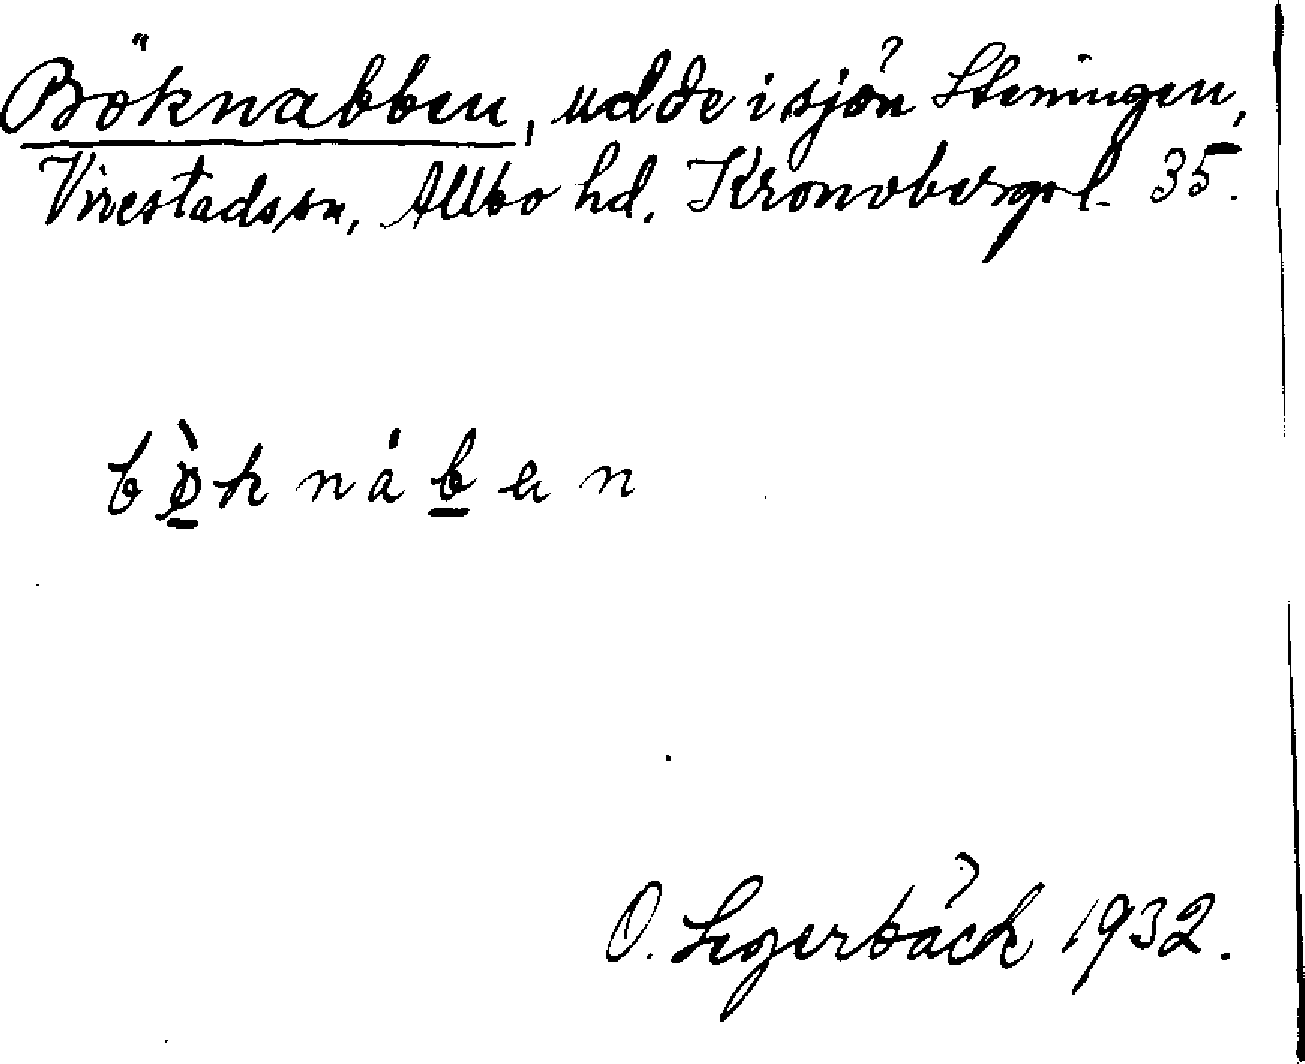 Böknabben, udde i sjön Steningen,
Virestads sn, Allbo hd. Kronobergs l. 35.
bø̀k náben
O. Segerbäck 1932.